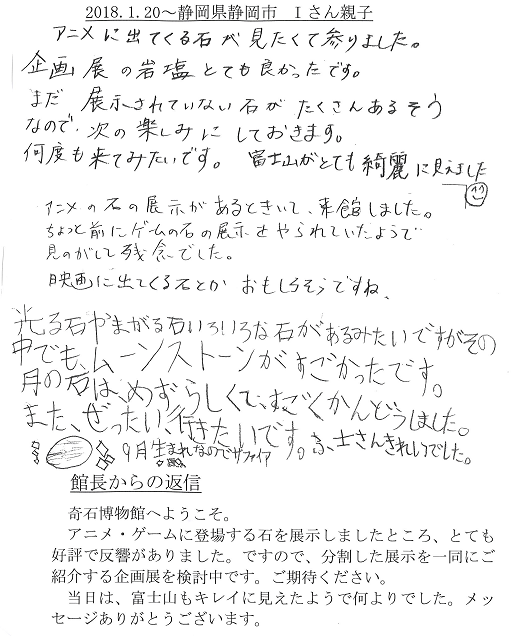 2018.1.20～静岡県静岡市　Iさん親子
アニメに出てくる石が見たくて参りました。
企画展の岩塩とても良かったです。
まだ展示されていない石がたくさんあるそう
なので、次の楽しみにしておきます。
何度も来てみたいです。富士山がとても綺麗に見えました
アニメの石の展示があるときいて、来館しました。
ちょっと前にゲームの石の展示をやられていたようで
見のがして残念でした。
映画に出てくる石とかおもしろそうですね。
光る石やまがる石いろいろな石があるみたいですがその
中でも、ムーンストーンがすごかったです。
月の石は、めずらしくて、すごくかんどうしました。
また、ぜったい、行きたいです。ふ士さんきれいでした。
9月生まれなのでサファイア
館長からの返信
奇石博物館へようこそ。
アニメ・ゲームに登場する石を展示しましたところ、とても
好評で反響がありました。ですので、分割した展示を一同にご
紹介する企画展を検討中です。ご期待ください。
当日は、富士山もキレイに見えたようで何よりでした。メッ
セージありがとうございます。